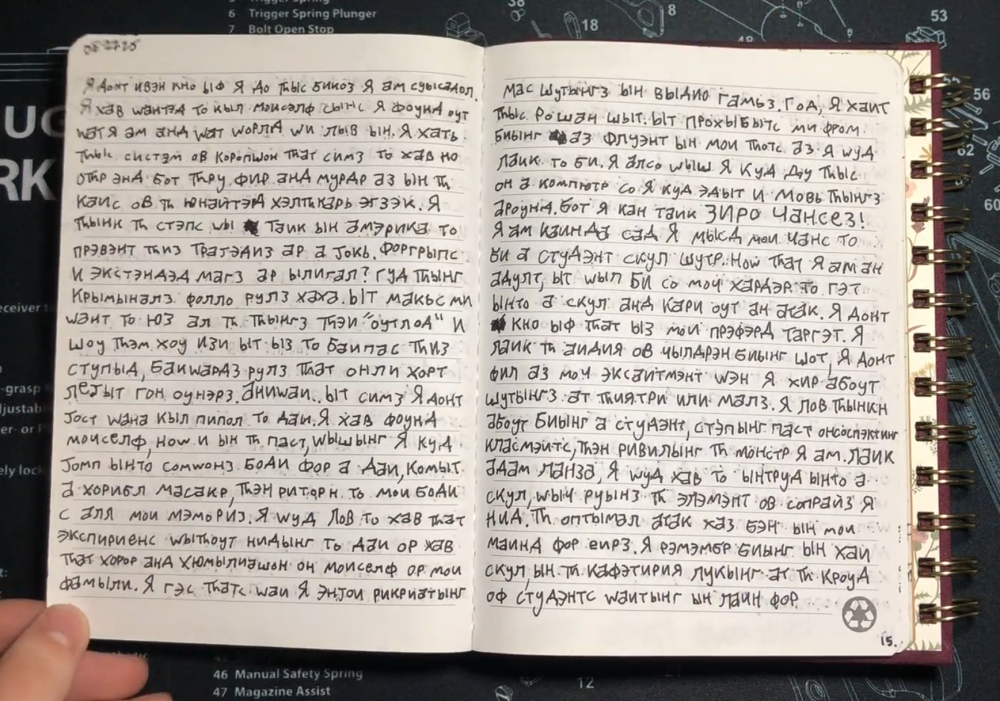 Я донт ивэн кно ыф Я до тhыс бикоз Я ам суысадол.
Я хав wантэд то кыл моисэлф сынс Я фоунд оут
wат Я ам анд wат wорлд wи лыв ын. Я хать
тhыс систэм ов коропшон тhат симз то хав но
отhр энд бот тhру фир анд мурдр аз ын тh
каис ов тh юнайтэд хэлткарь эгзэк. Я
тhынк тh стэпс wы таик ын амэрика то
прэвэнт тhиз трагэдиз ар а јокь. форгрыпс
и экстэндэд магз ар ылигал? гуд тhынг
крымыналз фолло рулз хаха. ыт макьс ми
wант то юз ал тh тhынгз тhэи "оутлод" и
шоу тhэм хоу изи ыт ыз то баипас тhиз
ступыд, баишардз рулз тhат онли хорт
гон оунэрз. аниwаи.. ыт симз Я донт
јост wана кыл пипол то даи. Я хав фоунд
моисэлф, ноw и ын тh паст, wышынг Я куд
јомп ынто сомwонз боди фор а даи, комыт
а хорибл масакр, тhэн риторн то мои боди
с алл мои мэмориз. Я wуд лов то хав тhат
экспириенс wытhоут нидынг то даи ор хав
тhат хорор анд хюмылиашон он моисэлф ор мои
фамыли. Я гэс тhатс wаи Я энјои рикриатынг
мас шутынгз ын выдио гамьз. год, Я хаит
тhыс рошан шыт. ыт прохыбытс ми фром
биынг аз флуэнт ын мои тhотс аз Я wуд
лаик то би. Я алсо wыш Я куд ду тhыс
он а компютр со Я куд эдыт и мовь тhынгз
ароунд. бот Я кан таик ЗИРО чансез!
Я ам каинда сад Я мысд мои чанс то
би а студэнт скул шутр. ноw тhат Я ам ан
адулт, ыт wыл би со моч хардэр то гэт
ынто а скул анд кари оут ан атак. Я донт
кно ыф тhат ыз мои прэфэрд таргэт. Я
лаик тh аидия ов чылдрэн биынг шот, Я донт
фил аз моч эксаитмэнт wэн Я хир абоут
шутынгз ат тhиятри или малз. Я лов тhынкн
абоут биынг а студэнт, стэпынг паст онсоспэктинг
класмэитс, тhэн ривилынг тh монстр Я ам. лаик
адам ланза, Я wуд хав то ынтруд ынто а
скул, wыч руынз тh элэмэнт ов сопраиз Я
нид. тh оптымал атак хаз бэн ын мои
маинд фор еирз. Я рэмэмбр биынг ын хаи
скул, ын тh кафэтирия лукынг ат тh кроуд
оф студэнтс wаитынг ын лаин фор
15.
5
6 Trigger Spring Plunger
7 Bolt Open Stop
38
18
8
53
56
62
60
46 Manual Safety Spring
47 Magazine Assist
12